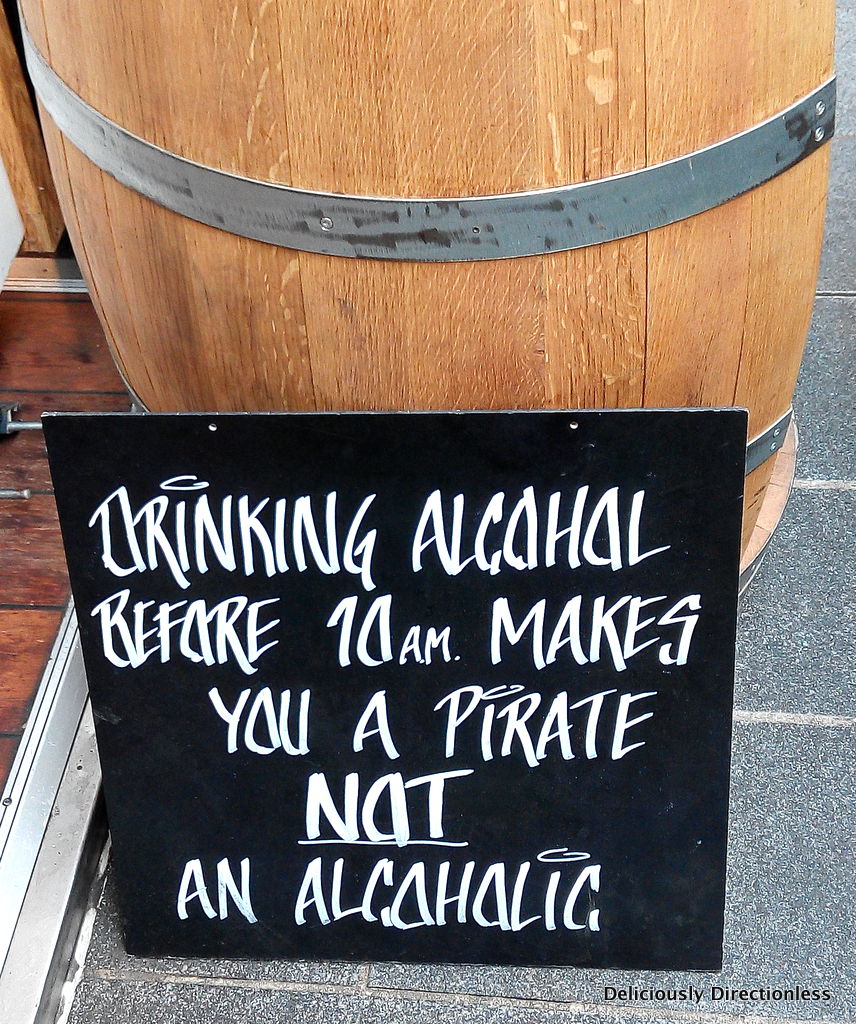 DRINKING ALCOHOL
BEFORE 10 A.M. MAKES
YOU A PIRATE
NOT
AN ALCOHOLIC
Deliciously Directionless